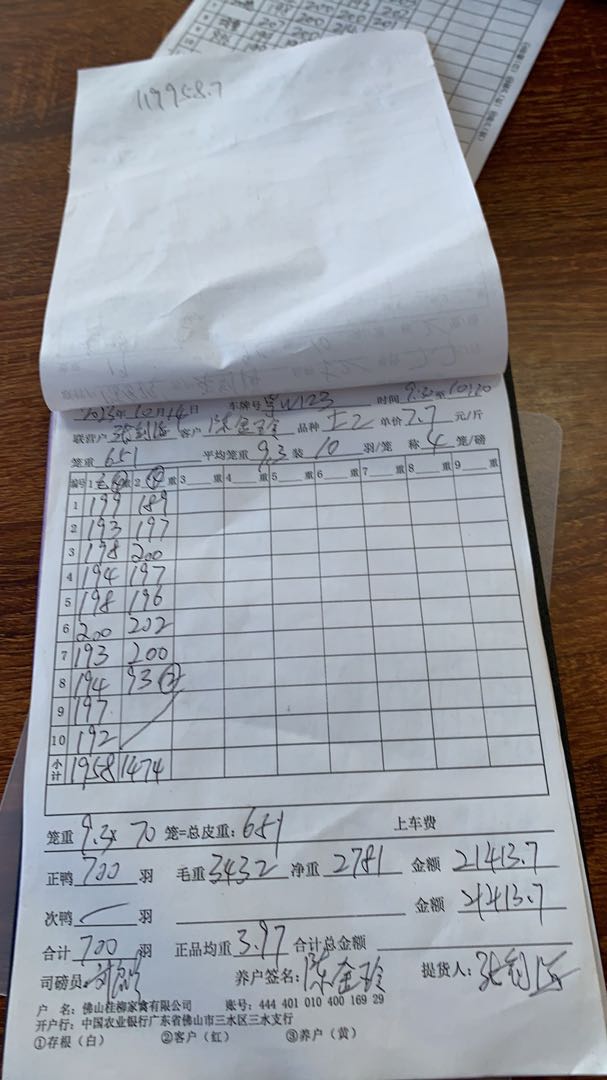 119958.7
2023年10月14日 车牌号 粤W123 时间 9:30至10:20
联营户 客户 陈金玲 品种 土2 单价 7.7 元/斤
笼重 651 平均笼重 9.3 装 10 羽/笼 称 4 笼/磅
编号 1 毛 重 2 重 3 重 4 重 5 重 6 重 7 重 8 重 9 重
1 199 189
2 193 197
3 198 200
4 194 197
5 198 196
6 200 202
7 193 200
8 194 93 ②
9 197
10 192
小计 1958 1474
笼重 9.3× 70 笼=总皮重: 651 上车费
正鸭 700 羽 毛重 3432 净重 2781 金额 21413.7
次鸭 羽 金额 21413.7
合计 700 羽 正品均重 3.97 合计总金额
司磅员: 养户签名: 陈金玲 提货人:
户 名: 佛山桂柳家禽有限公司 账号: 444 401 010 400 169 29
开户行: 中国农业银行广东省佛山市三水区三水支行
①存根（白） ②客户（红） ③养户（黄）